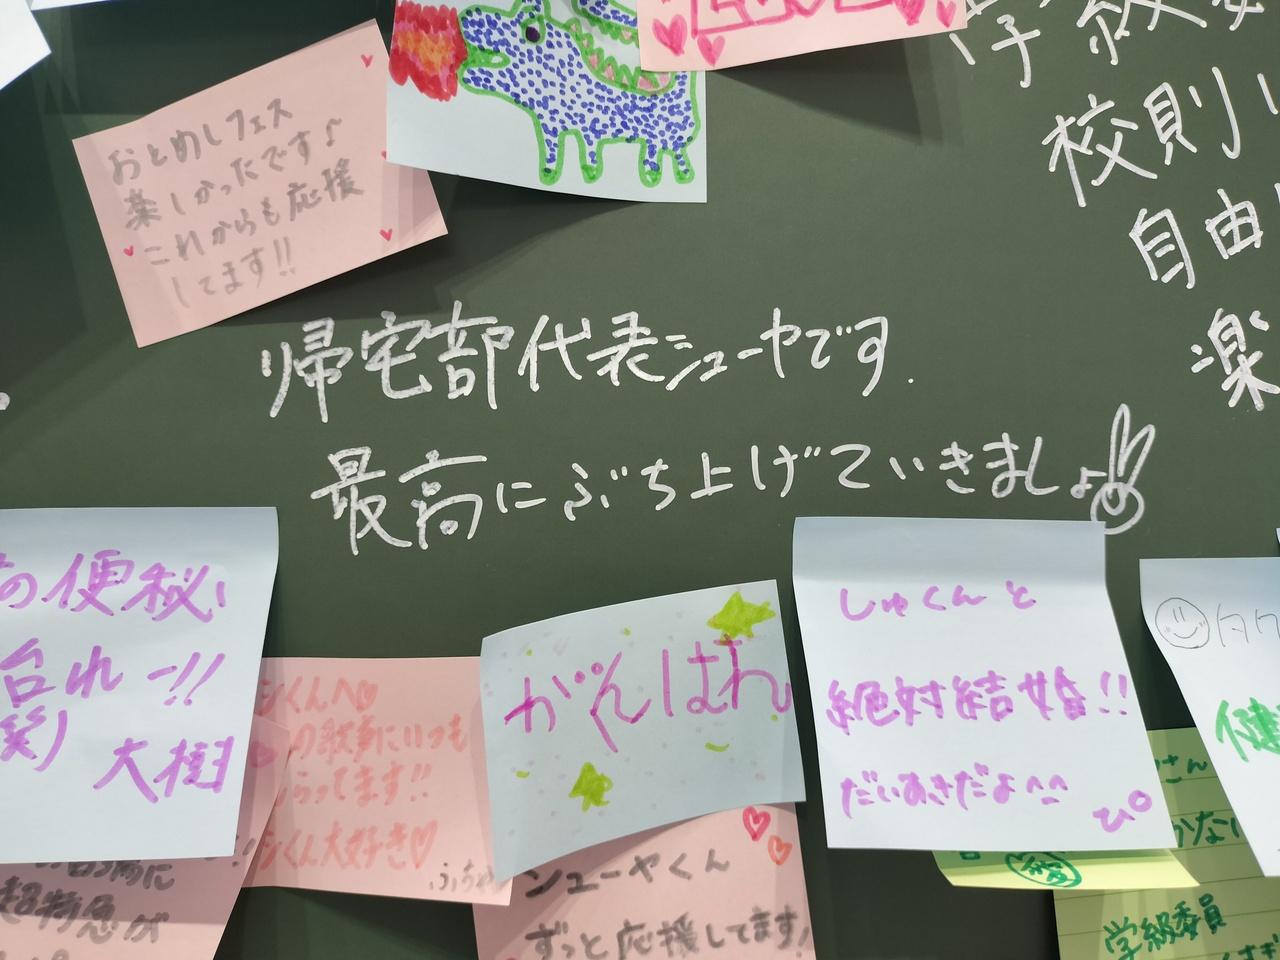 おとめしフェス
楽しかったです♪
これからも応援
してます!!
学級委
校則
自由
楽
帰宅部代表シューヤです.
最高にぶち上げていきまし♪
の便秘
治れー!!
(笑)
大樹
シくんへ♡
の歌声にいつも
らってます!!
シくん大好き♡
ふうか
超特急が
がんばれ
シューヤくん
ずっと応援してます!
しゅくんと
絶対結婚!!
だいすきだよ^^
ぴ°
タク
健
さん
学級委員